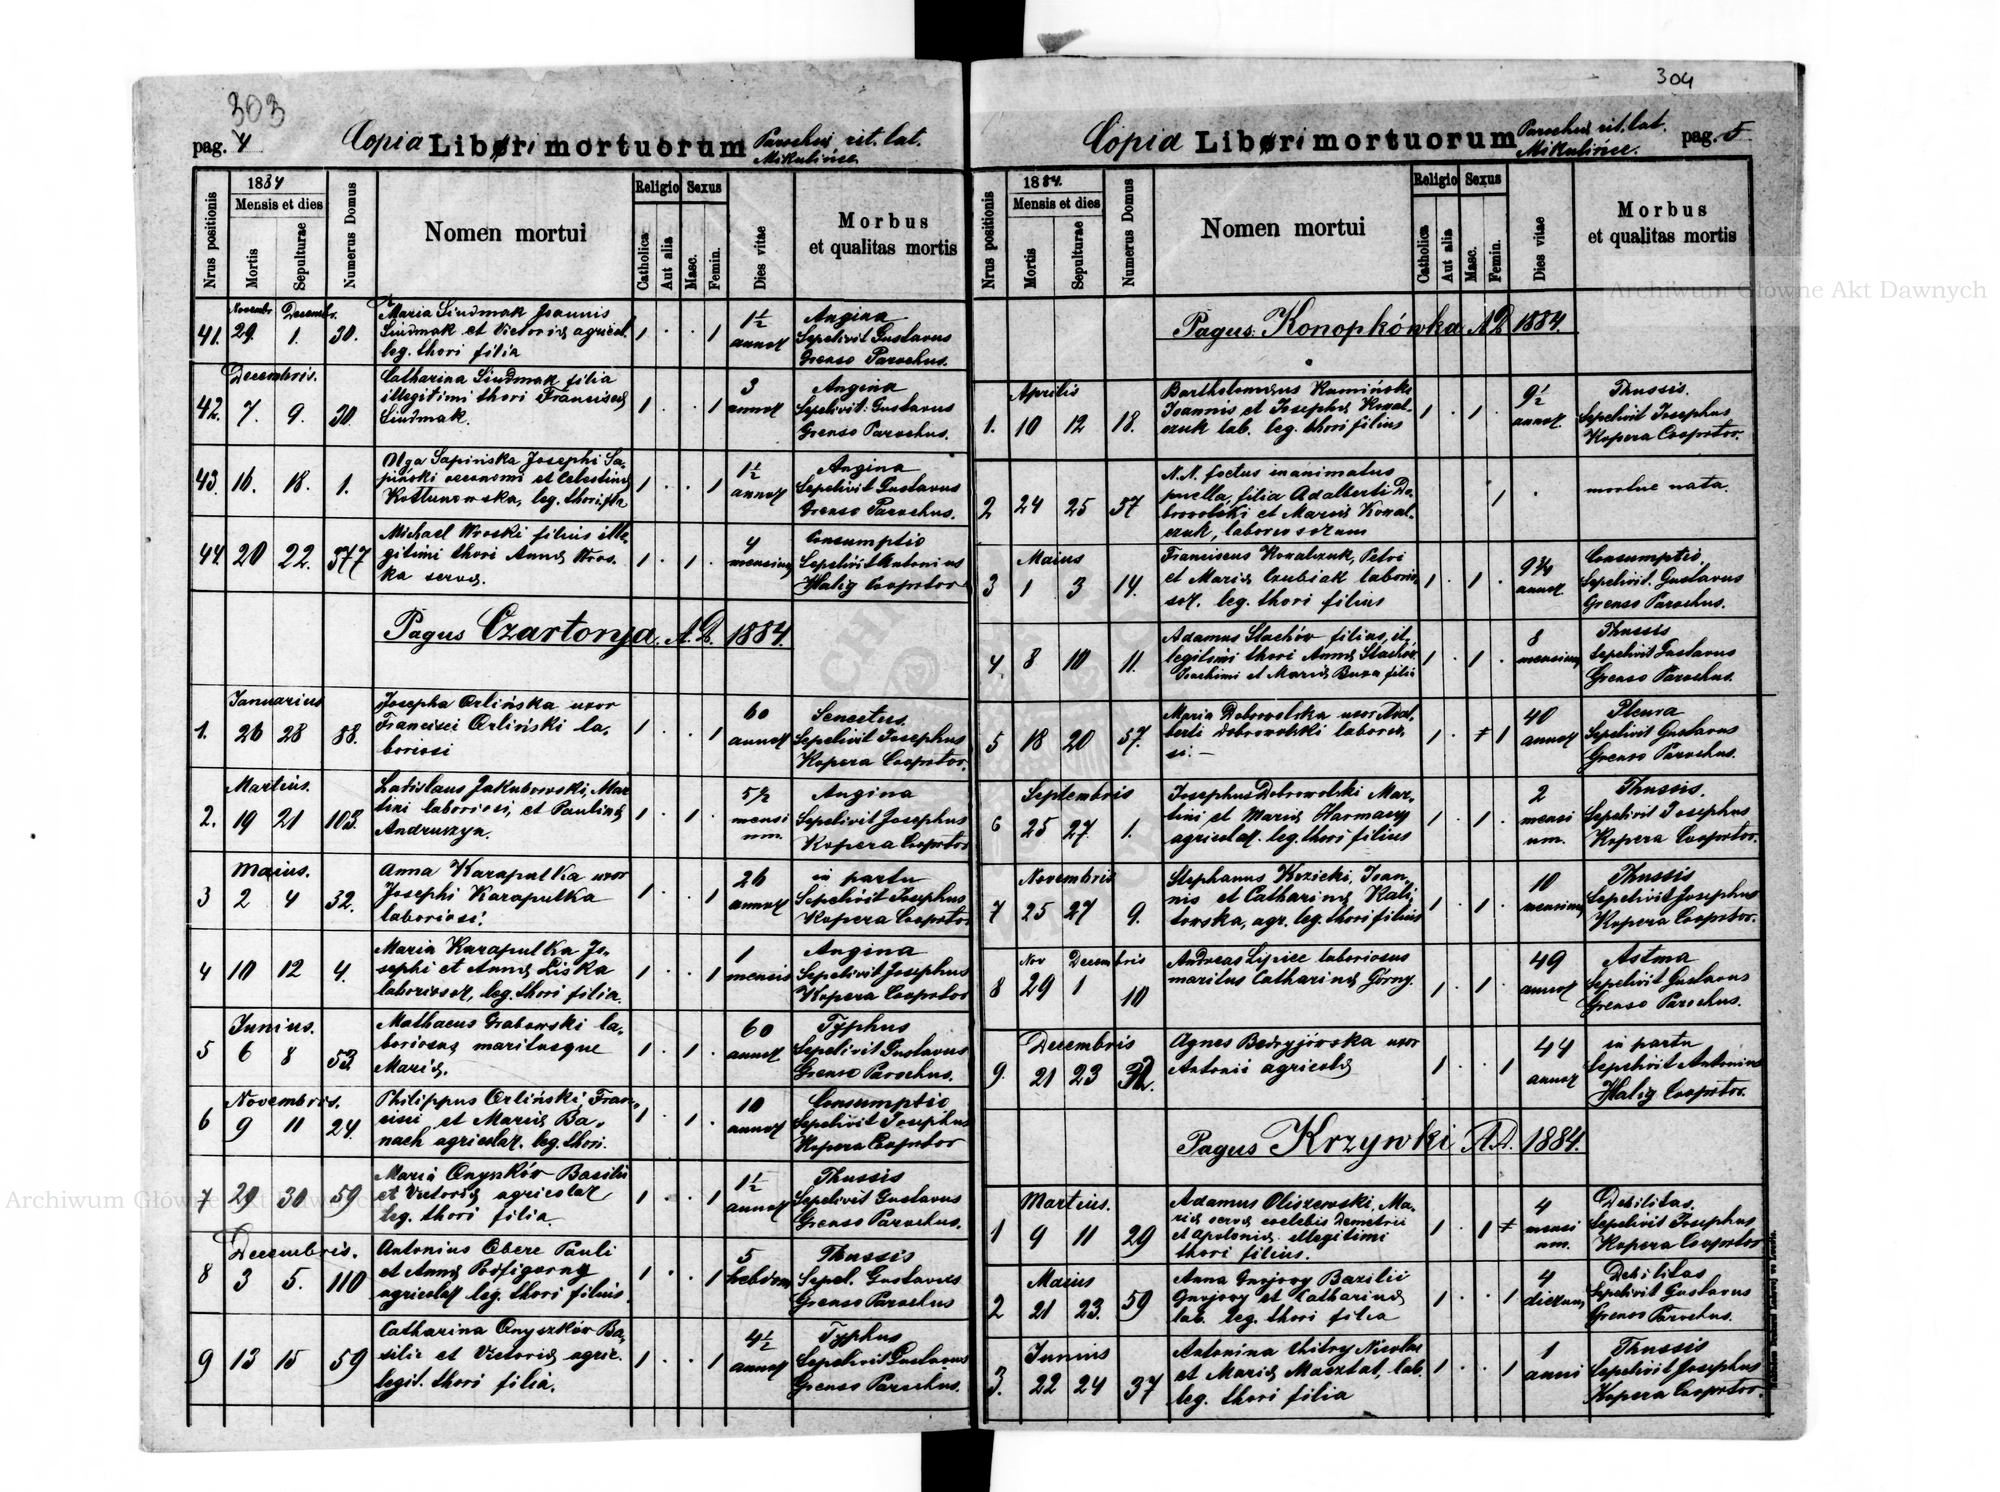 303
pag. 4
Copia Libri mortuorum Parochiæ rit. lat. Mikulińce.
Nrus positionis
1884
Mensis et dies
Mortis
Sepulturae
Numerus Domus
Nomen mortui
Religio
Catholica
Aut alia
Sexus
Masc.
Femin.
Dies vitae
Morbus
et qualitas mortis
Novembr. Decembr.
41. 29. 1. 30.
Maria Sindmak Joannis
Sindmak et Victoriæ agricol.
leg. thori filia
1 . . 1
1½
annor
Angina
Sepelivit Gustavus
Grenso Parochus.
Decembris.
42. 7. 9. 30.
Catharina Sindmak filia
illegitimi thori Franciscæ
Sindmak.
1 . . 1
3
annor
Angina
Sepelivit: Gustavus
Grenso Parochus.
43. 16. 18. 1.
Olga Sapińska Josephi Sa-
pinski oeconomi et Celestinæ
leg. thori filia
1 . . 1
1½
annor
Angina
Sepelivit Gustavus
Grenso Parochus.
44. 20 22. 377
Michael Wroski filius ille-
gitimi thori Annæ Wros-
ka servæ.
1 . 1 .
4
mensium
Consumptio
Sepelivit Antonius
Halig Cooprtor
Pagus Czartorya. A. D. 1884.
Januarius
1. 26 28 88.
Josepha Orlińska uxor
Francisci Orliński la-
boriosi
1 . . 1
60
annor
Senectus.
Sepelivit Josephus
Kopera Cooprtor.
Martius.
2. 19 21 103.
Ladislaus Jakubowski, Mar
tini laboriosi, et Paulinæ
Andruszyn.
1 . 1 .
5½
mensi
um.
Angina
Sepelivit Josephus
Kopera Cooprtor
Maius.
3 2 4 32.
Anna Karaputka uxor
Josephi Karaputka
laboriosi.
1 . . 1
26
annor
in partu
Sepelivit Josephus
Kopera Cooprtor
4 10 12 4.
Maria Karaputka Jo-
sephi et Annæ Liska
laboriosor, leg. thori filia.
1 . . 1
1
mensis
Angina
Sepelivit Josephus
Kopera Cooprtor
Junius.
5 6 8 53.
Mathaeus Grabowski la-
boriosus maritusque
Mariæ.
1 . 1 .
60
annor
Typhus
Sepelivit Gustavus
Grenso Parochus.
Novembris.
6 9 11 24.
Philippus Orliński Fran-
cisci et Mariæ Ba-
nach agricolar. leg. thori.
1 . 1 .
10
annor
Consumptio
Sepelivit Josephus
Kopera Cooprtor
7 29 30 59
Maria Onyszków Basilii
et Victoriæ agricolar
leg. thori filia.
1 . . 1
1½
annor
Thussis
Sepelivit Gustavus
Grenso Parochus.
Decembris.
8 3 5. 110
Antonius Obere Pauli
et Annæ Podfigorny
agricolar leg. thori filius.
1 . . 1
5
hebdom
Thussis
Sepel. Gustavus
Grenso Parochus
9 13 15 59
Catharina Onyszków Ba-
silii et Victoriæ agric.
legit. thori filia.
1 . . 1
4½
annor
Typhus
Sepelivit Gustavus
Grenso Parochus.
304
Copia Libri mortuorum Parochiæ rit. lat. Mikulińce.
pag. 5
Nrus positionis
1884.
Mensis et dies
Mortis
Sepulturae
Numerus Domus
Nomen mortui
Religio
Catholica
Aut alia
Sexus
Masc.
Femin.
Dies vitae
Morbus
et qualitas mortis
Pagus: Konopkówka A. D. 1884.
Aprilis
1. 10 12 18.
Bartholomæus Kamiński
Joannis et Josephæ Kowal-
czuk lab. leg. thori filius
1 . 1 .
9½
annor
Thussis.
Sepelivit Josephus
Kopera Cooprtor.
2 24 25 57
N.N. foetus inanimatus
puella, filia Adalberti Do-
browolski et Mariæ Kowal-
czuk, laboriosorum
1
mortue nata.
Maius
3 1 3 14.
Franciscus Kowalczuk, Petri
et Mariæ Czubiak laborio-
sor. leg. thori filius
1 . 1 .
9¾
annor
Consumptio.
Sepelivit. Gustavus
Grenso Parochus.
4 8 10 11.
Adamus Stachów filius, il-
legitimi thori Annæ Stachów
Joachimi et Mariæ Buza filii
1 . 1 .
8
mensium
Thussis
Sepelivit Gustavus
Grenso Parochus.
5 18 20 57.
Maria Dobrowolska uxor Adal-
berti Dobrowolski laborio-
si. —
1 . 1
40
annor
Pleura
Sepelivit Gustavus
Grenso Parochus.
Septembris
6 25 27. 1.
Josephus Dobrowolski Mar-
tini et Mariæ Harmaczy
agricolar. leg. thori filius
1 . 1 .
2
mensi
um.
Thussis.
Sepelivit Josephus
Kopera Cooprtor.
Novembris
7 25 27 9.
Stephanus Kozicki, Joan-
nis et Catharinæ Kali-
towska, agr. leg. thori filius
1 . 1 .
10
mensium
Thussis
Sepelivit Josephus
Kopera Cooprtor.
Nov Decembris
8 29 1 10
Andreas Lypiec laboriosus
maritus Catharinæ Górny.
1 . 1 .
49
annor
Astma
Sepelivit Gustavus
Grenso Parochus.
Decembris
9. 21 23 32.
Agnes Bedryjowska uxor
Antonii agricolæ
1 . . 1
44
annor
in partu
Sepelivit Antonius
Halig Cooprtor.
Pagus Krzywki A.D. 1884.
Martius.
1 9 11 29
Adamus Oliszewski, Ma-
riæ servæ coelebis Demetrii
et Apoloniæ illegitimi
thori filius.
1 . 1
4
mensi
um.
Debilitas.
Sepelivit Josephus
Kopera Cooprtor
Maius
2 21 23. 59
Anna Gnojowy Bazilii
Gnojowy et Catharinæ
lab. leg. thori filia
1 . . 1
4
dierum
Debilitas
Sepelivit Gustavus
Grenso Parochus.
Junius
3. 22 24 37
Antonina Chitry Nicolai
et Mariæ Masztal, lab.
leg. thori filia
1 . . 1
1
anni
Thussis
Sepelivit Josephus
Kopera Cooprtor.
Archiwum Główne Akt Dawnych
Archiwum Główne Akt Dawnych